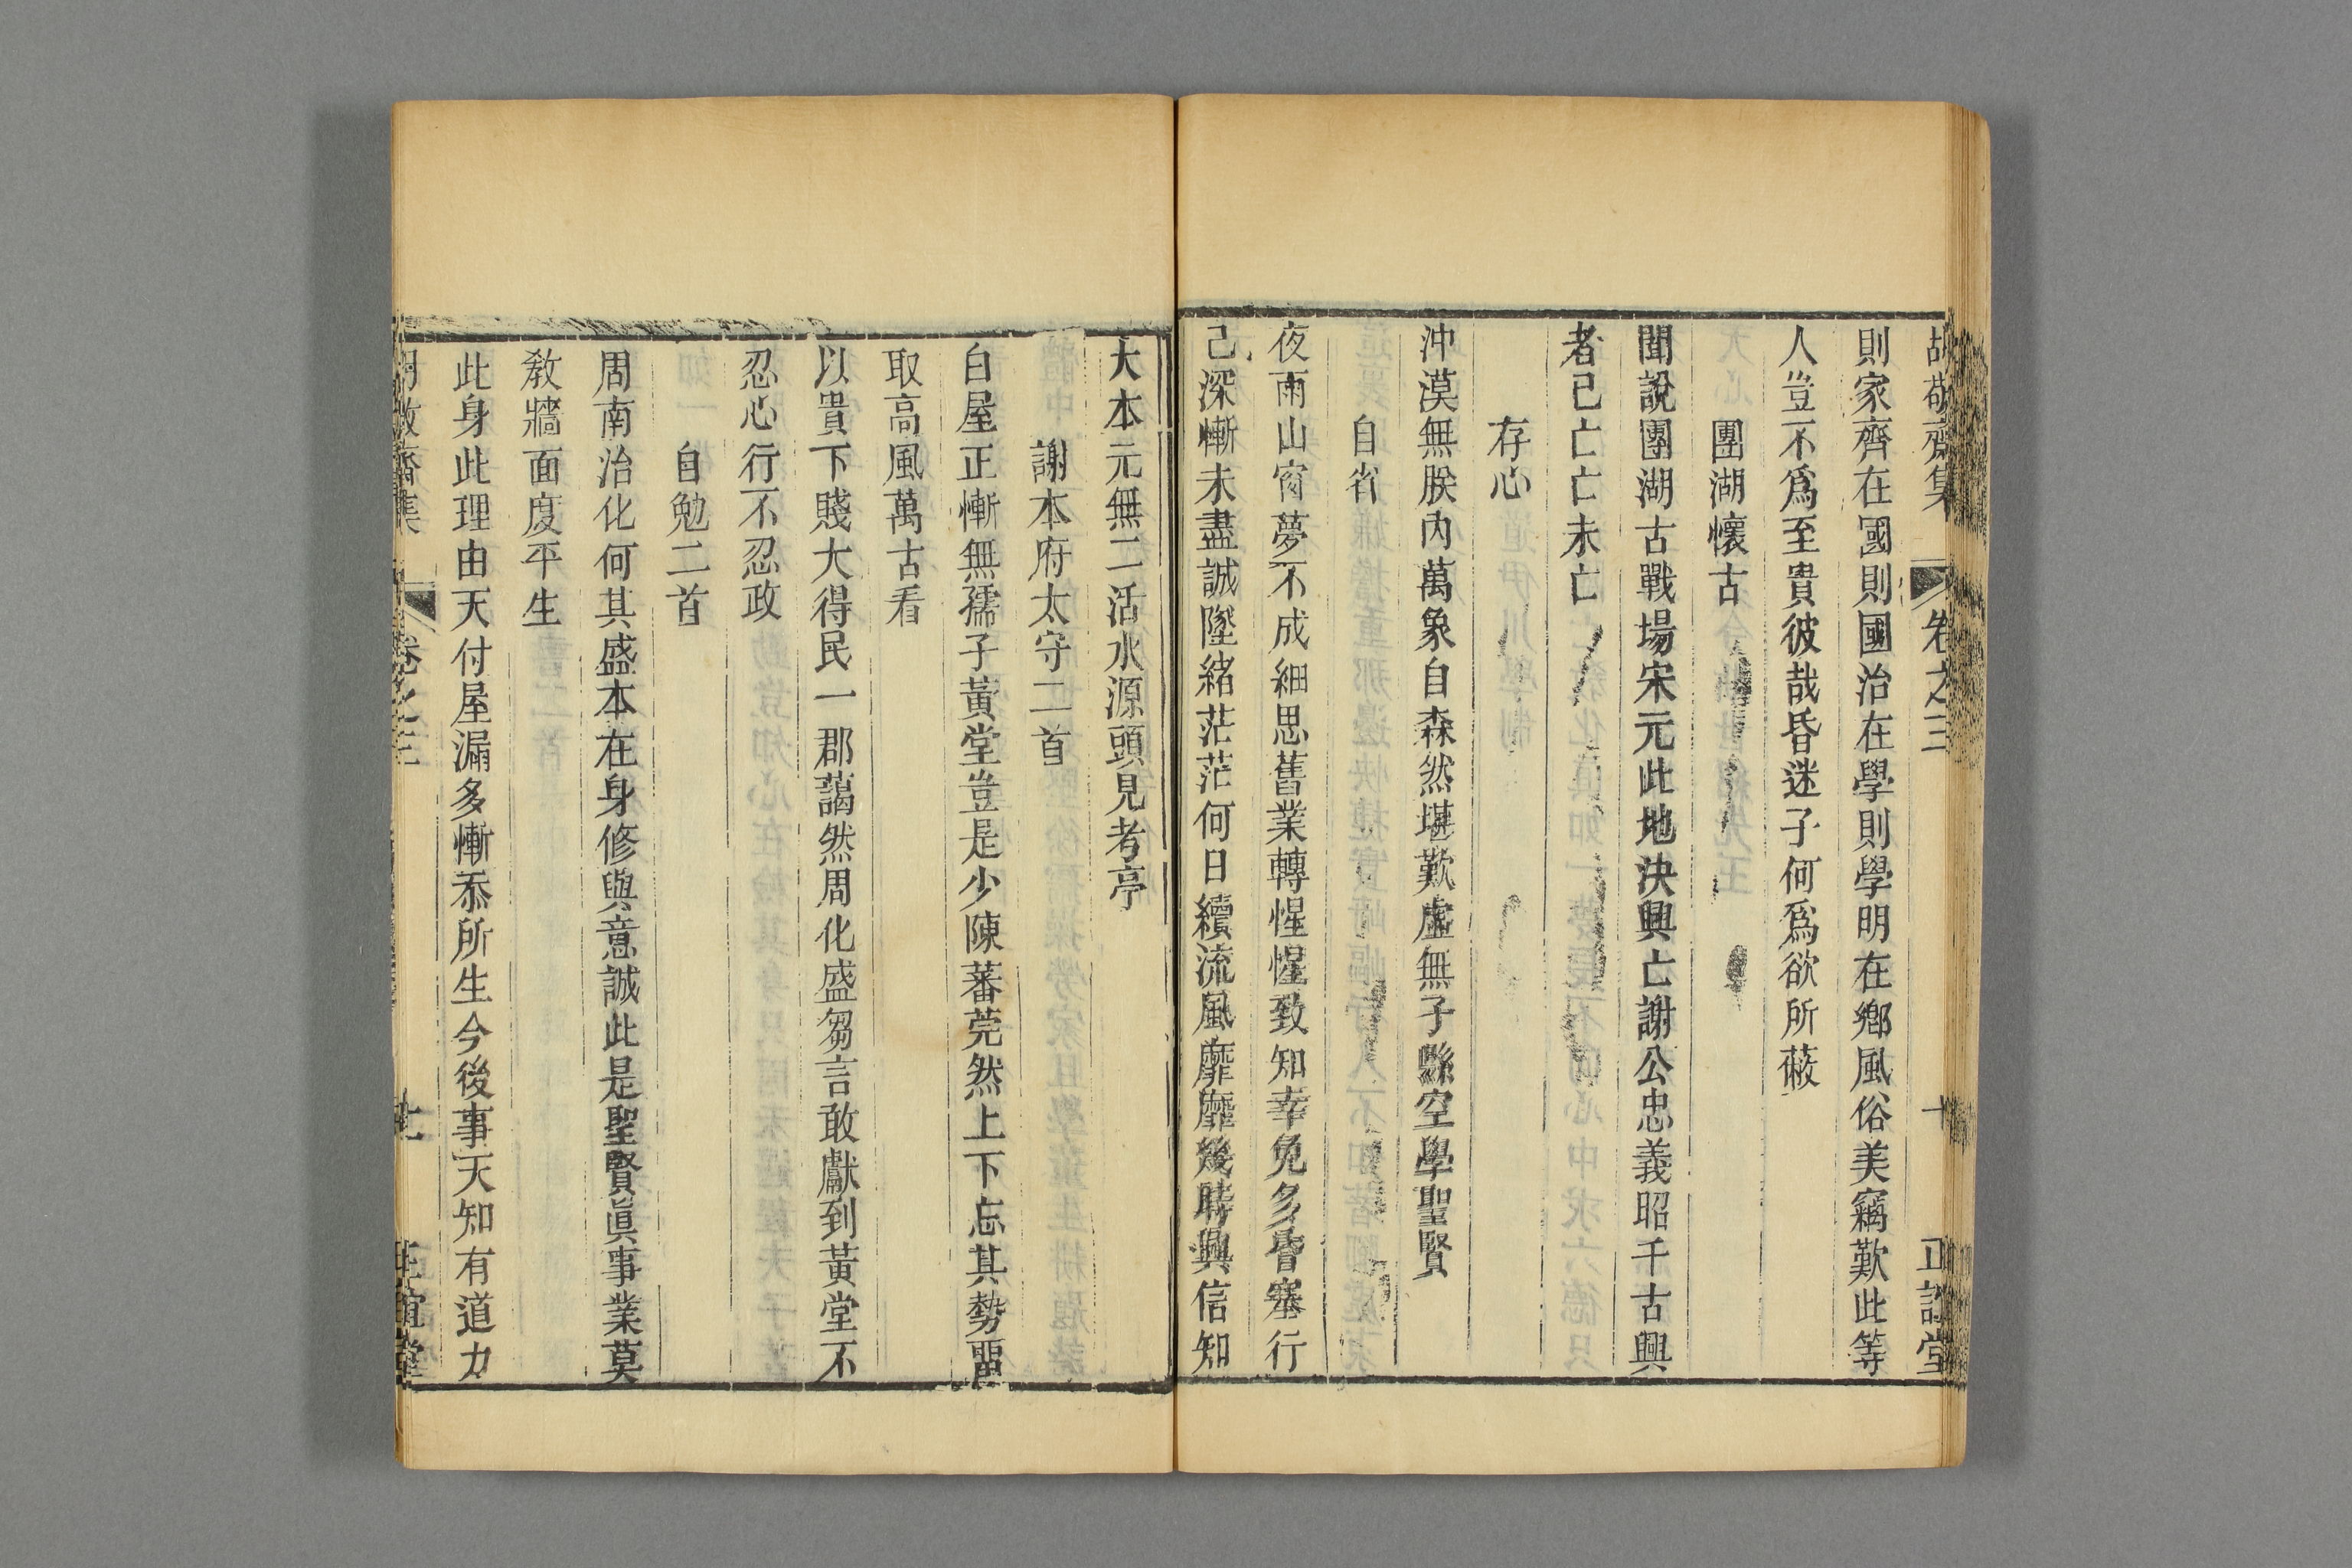 胡敬齋集 卷之三 十 正誼堂
則家齊在國則國治在學則學明在鄉風俗美竊歎此等
人豈不爲至貴彼哉昏迷子何爲欲所蔽
團湖懷古
聞說團湖古戰場宋元此地決興亡謝公忠義昭千古興
者已亡亡未亡
存心
沖漠無朕內萬象自森然堪歎虛無子縣空學聖賢
自省
夜雨山窗夢不成細思舊業轉惺惺致知幸免多昏塞行
己深慚未盡誠墜緒茫茫何日續流風靡靡幾時興信知
大本元無二活水源頭見考亭
謝本府太守二首
白屋正慚無孺子黃堂豈是少陳蕃莞然上下忘其勢畱
取高風萬古看
以貴下賤大得民一郡藹然周化盛芻言敢獻到黃堂不
忍心行不忍政
自勉二首
周南治化何其盛本在身修與意誠此是聖賢眞事業莫
敎牆面度平生
此身此理由天付屋漏多慚忝所生今後事天知有道力
胡敬齋集 卷之三 十一 正誼堂